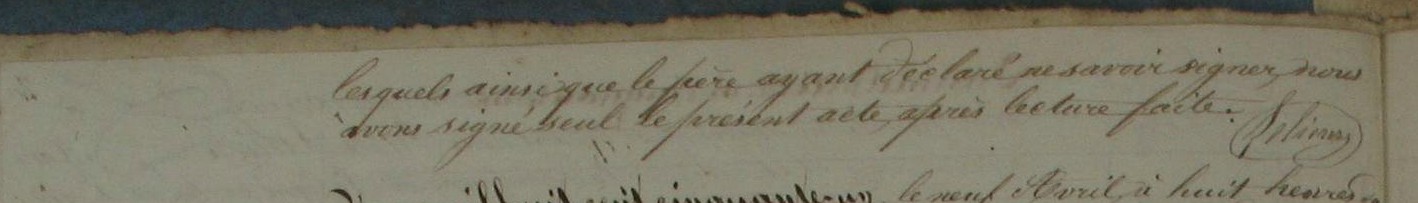 lesquels ainsi que le père ayant déclaré ne savoir signer, nous
avons signé seul le présent acte, après lecture faite.
huit cent cinquante-un, le neuf Avril, à huit heures